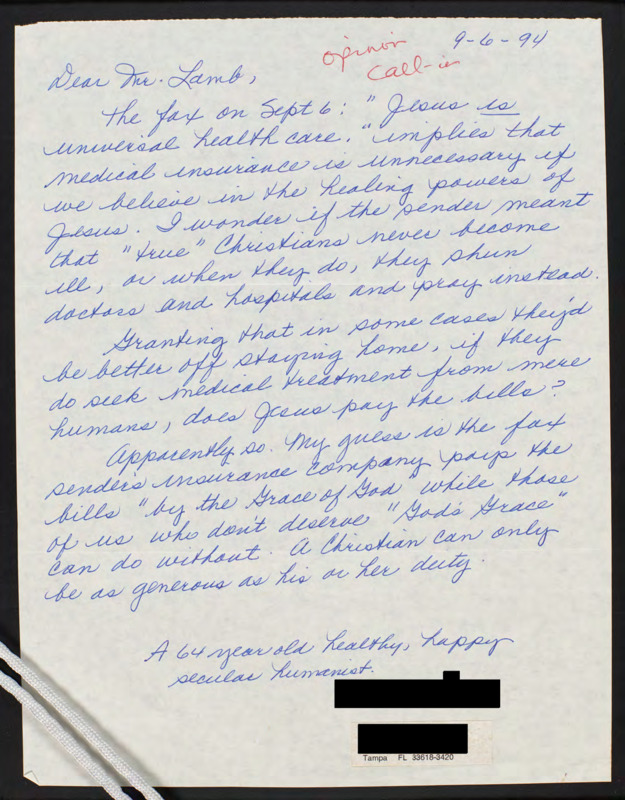 opinion
call-in
9-6-94
Dear Mr. Lamb,
The fax on Sept 6: "Jesus is
universal health care." implies that
medical insurance is unnecessary if
we believe in the healing powers of
Jesus. I wonder if the sender meant
that "true" Christians never become
ill, or when they do, they shun
doctors and hospitals and pray instead.
Granting that in some cases they'd
be better off staying home, if they
do seek medical treatment from mere
humans, does Jesus pay the bills?
Apparently so. My guess is the fax
senders insurance company pays the
bills "by the Grace of God" while those
of us who don't deserve "God's Grace"
can do without. A Christian can only
be as generous as his or her deity.
A 64 year old healthy, happy
secular humanist.
Tampa FL 33618-3420